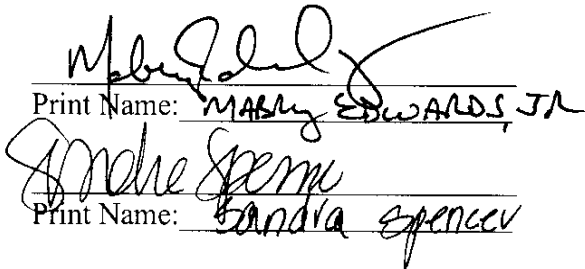 Mabry Edwards Jr
Print Name: MABRY EDWARDS, JR
Sandra Spencer
Print Name: Sandra Spencer